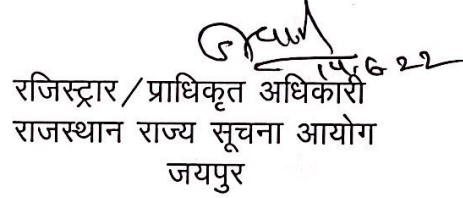 14.6.22
रजिस्ट्रार / प्राधिकृत अधिकारी
राजस्थान राज्य सूचना आयोग
जयपुर